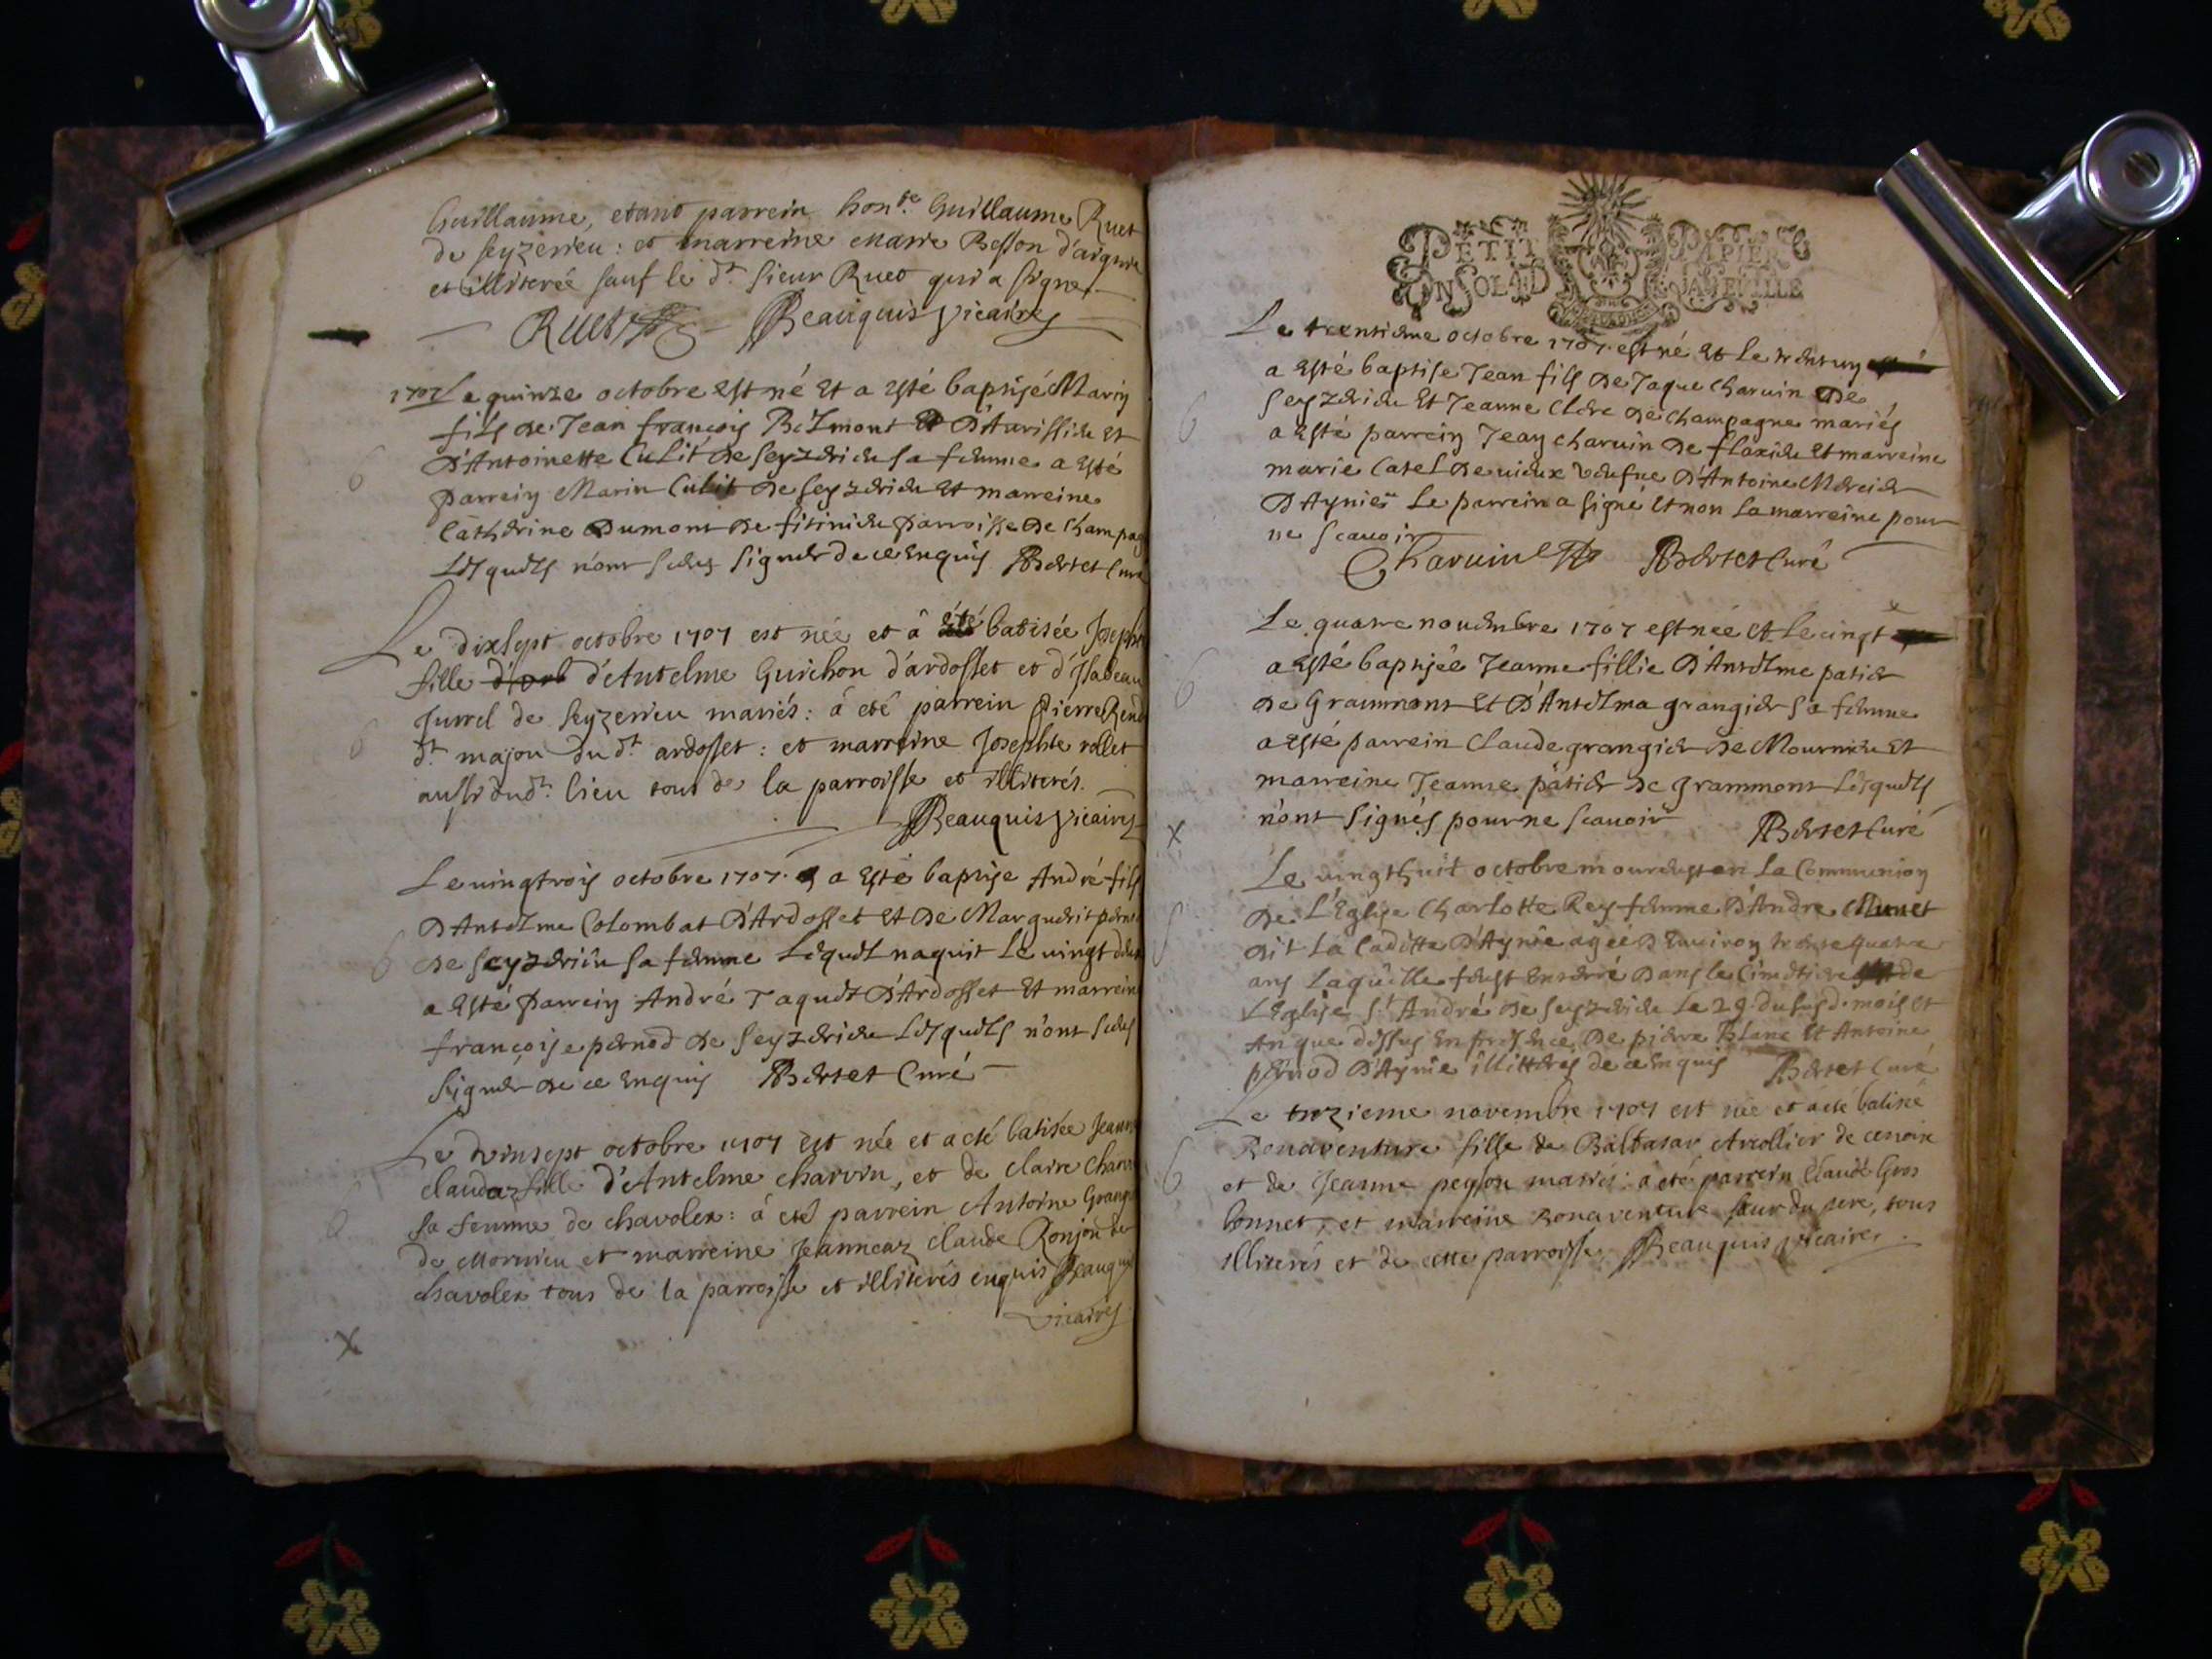 Guillaume, etant parrein hon.ble Guillaume Ruet
de seyzerieu : et marreine Marie Besson d'aignie
et illiteré sauf le d.t sieur Ruet qui a signe
Ruet Beauquis vicaire
1707 Le quinze octobre est né et a esté baptisé Marin
fils de Jean françois Belmont D'Avrissieu et
D'Antoinette Culit de seyzerieu sa femme a esté
parrein Marin Culit de seyzerieu et marreine
Catherine Dumont de fitinieu parroisse de Champag
Lesquels n'ont sceus signer de ce enquis Bertet Curé
Le dixsept octobre 1707 est née et â été batisée Josephe
fille d'Antelme Guichon d'ardosset et d'Isabeau
Juvrel de seyzerieu mariés : â eté parrein Pierre
d.t majou du d.t ardosset : et marreine Josephte rollet
aussi dud.t lieu tous de la parroisse et illiterés.
Beauquis vicaire
Le vingtrois octobre 1707 a esté baptise André fils
D'Antelme Colombat D'Ardosset et de Marguerit pern
de seyzerieu sa femme Lequel naquit le vingt deux
a esté parrein André Taquet D'Ardosset et marrein
françoise pernod de seyzerieu Lesquels n'ont sceus
signer de ce enquis Bertet Curé
Le vinsept octobre 1707 est née et a eté batisée Jeann
claudaz fille d'Antelme charvin, et de claire Charv
sa femme de chavolex : â eté parrein Antoine Grang
de Mornieu et marreine Jeanneaz claude Ronjon de
chavolex tous de la parroisse et illiterés enquis Beauquis
vicaire
PETIT PAPIER
UN SOL 4 D LA FEUILLE
Le trentieme octobre 1707 est né et le trentun
a esté baptise Jean fils de Jaque charvin de
seyzerieu et Jeanne Clerc de champagne mariés
a esté parrein Jean charvin de flaxieu et marreine
marie Catel de vieux veufue D'Antoine Mercier
D'Aynieu Le parrein a signé et non la marreine pour
ne scavoir
Charvin Bertet Curé
Le quatre nouembre 1707 est née et le cinq
a esté baptisée Jeanne fillie D'Antelme patier
de Grammont et D'Antelma grangier sa femme
a esté parrein Claude grangier de Mournieu et
marreine Jeanne patier de grammont Lesquels
n'ont signés pour ne scavoir Bertet Curé
Le vingthuit octobre mourust en la Communion
de L'Eglise Charlotte Rey femme D'Andre Munet
dit La Cadette D'Aynie agée D'Environ trente quatre
ans Laquelle feust enterré dans le Cimetiere de
L'Eglise S.t André de seyzerieu le 29. du susd. mois et
an que dessus en presence de pierre Blanc et Antoine
pernod D'Aynie illitteres de ce enquis Bertet Curé
Le treizieme novembre 1707 est née et a eté batisée
Bonaventure fille de Baltasar Arcollier de cenoix
et de Jeanne peylou mariés : a eté parrein Claude Gros
bonnet, et marreine Bonaventure sœur du pere, tous
illiterés et de cette parroisse. Beauquis vicaire